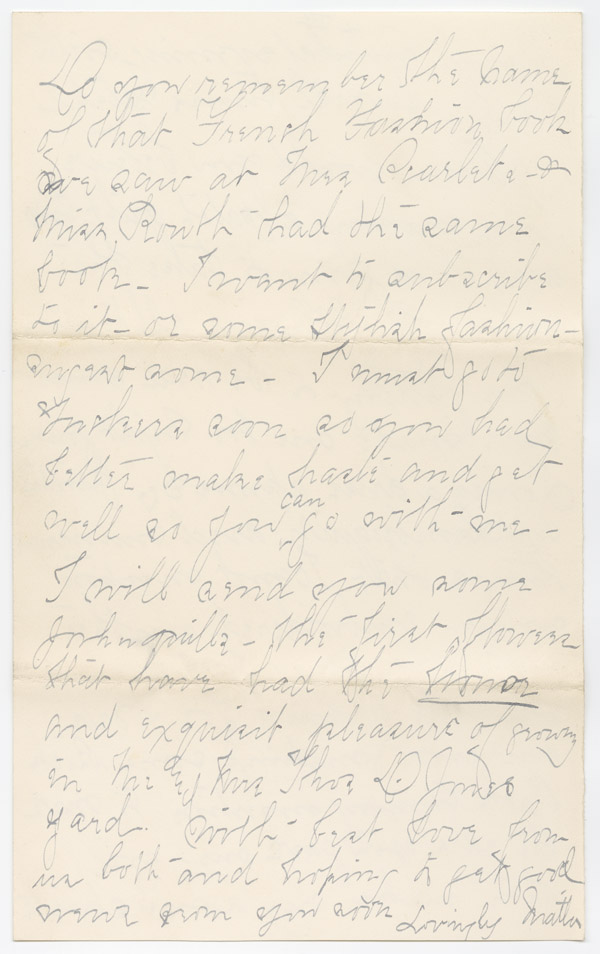 Do you remember the name
of that French Fashion book
we saw at Mrs Scarlets - &
Miss Routh had the same
book - I want to subscribe
to it - or some stylish fashion -
suggest some - I must go to
Tuskers soon so you had
better make haste and get
well so you can go with me -
I will send you some
Johnquills - the first flowers
that have had the honor
and exquisit pleasure of growing
in Mr & Mrs Thos D Jones
yard. With best love from
us both and hoping to get good
news from you soon Lovingly